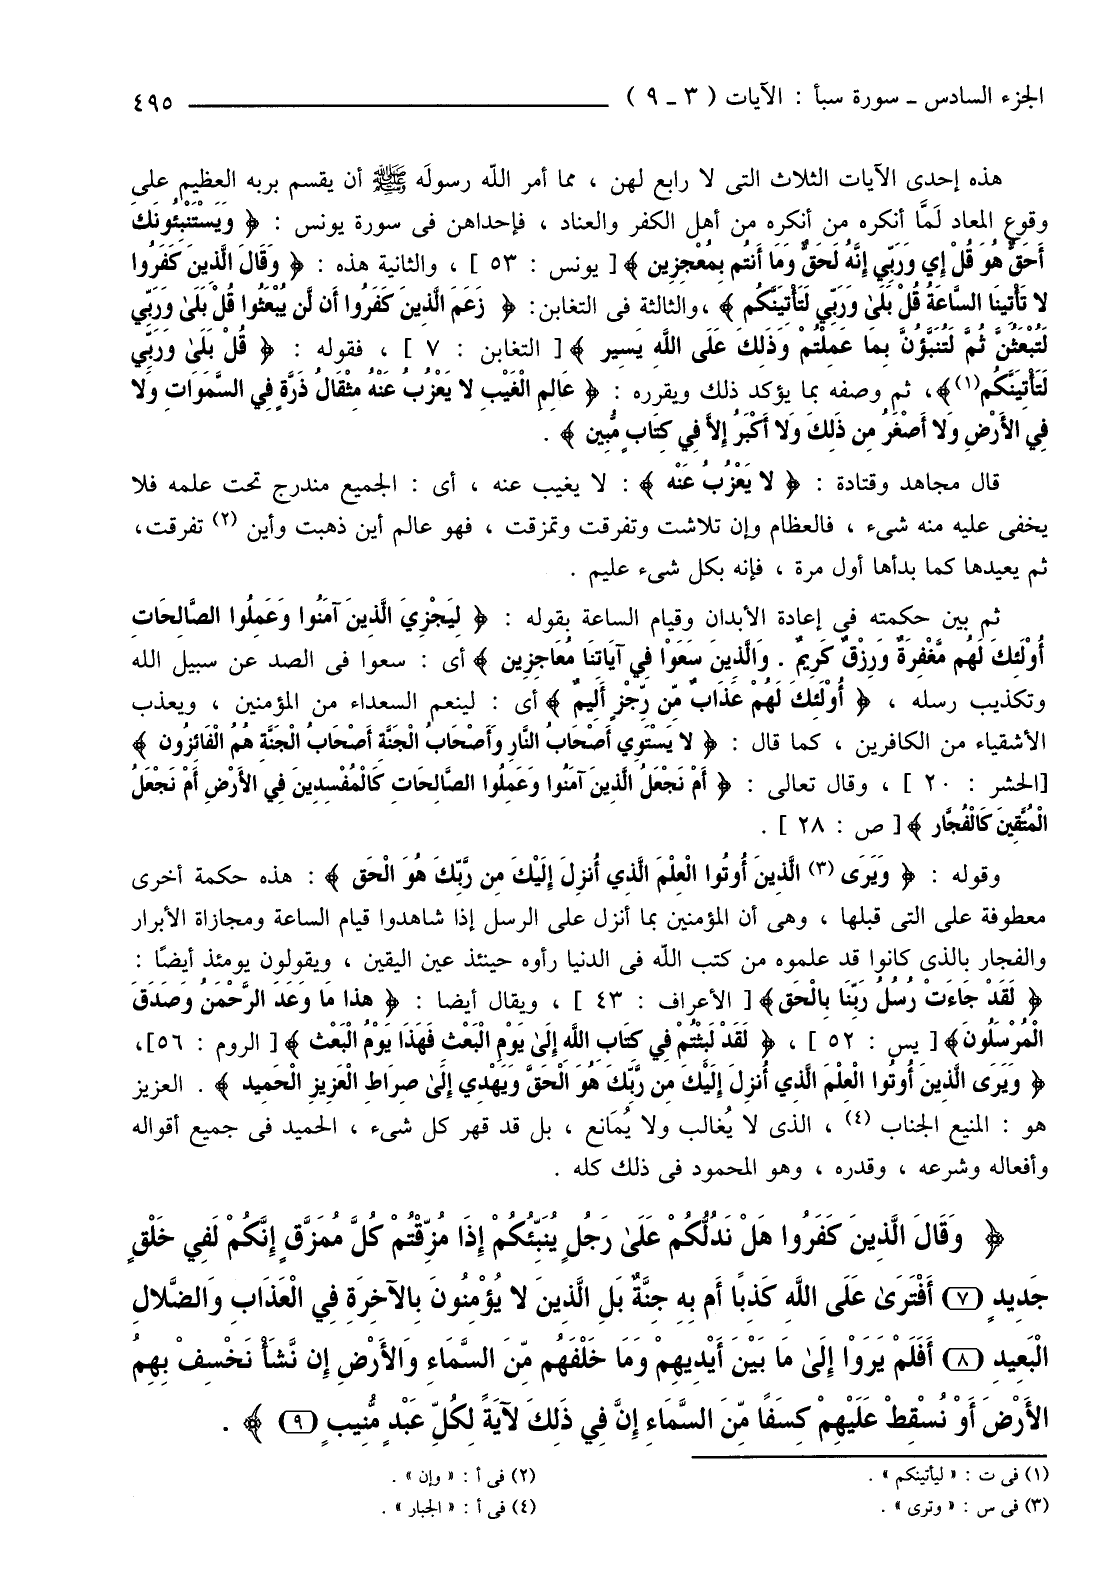 الجزء السادس ـ سورة سبأ : الآيات ( ٣ ـ ٩ ) ٤٩٥
هذه إحدى الآيات الثلاث التى لا رابع لهن ، مما أمر الله رسولَه ﷺ أن يقسم بربه العظيم على
وقوع المعاد لَمَّا أنكره من أنكره من أهل الكفر والعناد ، فإحداهن فى سورة يونس : ﴿ وَيَسْتَنْبِئُونَكَ
أَحَقٌّ هُوَ قُلْ إِي وَرَبِّي إِنَّهُ لَحَقٌّ وَمَا أَنتُم بِمُعْجِزِين ﴾ [ يونس : ٥٣ ] ، والثانية هذه : ﴿ وَقَالَ الَّذِينَ كَفَرُوا
لا تَأْتِينَا السَّاعَةُ قُلْ بَلَىٰ وَرَبِّي لَتَأْتِيَنَّكُم ﴾ ،والثالثة فى التغابن: ﴿ زَعَمَ الَّذِينَ كَفَرُوا أَن لَّن يُبْعَثُوا قُلْ بَلَىٰ وَرَبِّي
لَتُبْعَثُنَّ ثُمَّ لَتُنَبَّؤُنَّ بِمَا عَمِلْتُمْ وَذَلِكَ عَلَى اللَّهِ يَسِير ﴾ [ التغابن : ٧ ] ، فقوله : ﴿ قُلْ بَلَىٰ وَرَبِّي
لَتَأْتِيَنَّكُم(١)﴾، ثم وصفه بما يؤكد ذلك ويقرره : ﴿ عَالِمِ الْغَيْبِ لا يَعْزُبُ عَنْهُ مِثْقَالُ ذَرَّةٍ فِي السَّمَوَاتِ وَلا
فِي الأَرْضِ وَلا أَصْغَرُ مِن ذَلِكَ وَلا أَكْبَرُ إِلاَّ فِي كِتَابٍ مُّبِين ﴾ .
قال مجاهد وقتادة : ﴿ لا يَعْزُبُ عَنْه ﴾ : لا يغيب عنه ، أى : الجميع مندرج تحت علمه فلا
يخفى عليه منه شىء ، فالعظام وإن تلاشت وتفرقت وتمزقت ، فهو عالم أين ذهبت وأين (٢) تفرقت،
ثم يعيدها كما بدأها أول مرة ، فإنه بكل شىء عليم .
ثم بين حكمته فى إعادة الأبدان وقيام الساعة بقوله : ﴿ لِيَجْزِيَ الَّذِينَ آمَنُوا وَعَمِلُوا الصَّالِحَاتِ
أُوْلَئِكَ لَهُم مَّغْفِرَةٌ وَرِزْقٌ كَرِيمٌ . وَالَّذِينَ سَعَوْا فِي آيَاتِنَا مُعَاجِزِين ﴾ أى : سعوا فى الصد عن سبيل الله
وتكذيب رسله ، ﴿ أُوْلَئِكَ لَهُمْ عَذَابٌ مِّن رِّجْزٍ أَلِيمٌ ﴾ أى : لينعم السعداء من المؤمنين ، ويعذب
الأشقياء من الكافرين ، كما قال : ﴿ لا يَسْتَوِي أَصْحَابُ النَّارِ وَأَصْحَابُ الْجَنَّةِ أَصْحَابُ الْجَنَّةِ هُمُ الْفَائِزُون ﴾
[الحشر : ٢٠ ] ، وقال تعالى : ﴿ أَمْ نَجْعَلُ الَّذِينَ آمَنُوا وَعَمِلُوا الصَّالِحَاتِ كَالْمُفْسِدِينَ فِي الأَرْضِ أَمْ نَجْعَلُ
الْمُتَّقِينَ كَالْفُجَّار ﴾ [ ص : ٢٨ ] .
وقوله : ﴿ وَيَرَى (٣) الَّذِينَ أُوتُوا الْعِلْمَ الَّذِي أُنزِلَ إِلَيْكَ مِن رَّبِّكَ هُوَ الْحَق ﴾ : هذه حكمة أخرى
معطوفة على التى قبلها ، وهى أن المؤمنين بما أنزل على الرسل إذا شاهدوا قيام الساعة ومجازاة الأبرار
والفجار بالذى كانوا قد علموه من كتب الله فى الدنيا رأوه حينئذ عين اليقين ، ويقولون يومئذ أيضًا :
﴿ لَقَدْ جَاءَتْ رُسُلُ رَبِّنَا بِالْحَق﴾ [ الأعراف : ٤٣ ] ، ويقال أيضا : ﴿ هذا مَا وَعَدَ الرَّحْمَنُ وَصَدَقَ
الْمُرْسَلُونَ﴾ [ يس : ٥٢ ] ، ﴿ لَقَدْ لَبِثْتُمْ فِي كِتَابِ اللَّهِ إِلَىٰ يَوْمِ الْبَعْثِ فَهَذَا يَوْمُ الْبَعْث ﴾ [ الروم : ٥٦]،
﴿ وَيَرَى الَّذِينَ أُوتُوا الْعِلْمَ الَّذِي أُنزِلَ إِلَيْكَ مِن رَّبِّكَ هُوَ الْحَقَّ وَيَهْدِي إِلَىٰ صِرَاطِ الْعَزِيزِ الْحَمِيد ﴾ . العزيز
هو : المنيع الجناب (٤) ، الذى لا يُغالب ولا يُمَانع ، بل قد قهر كل شىء ، الحميد فى جميع أقواله
وأفعاله وشرعه ، وقدره ، وهو المحمود فى ذلك كله .
﴿ وَقَالَ الَّذِينَ كَفَرُوا هَلْ نَدُلُّكُمْ عَلَىٰ رَجُلٍ يُنَبِّئُكُمْ إِذَا مُزِّقْتُمْ كُلَّ مُمَزَّقٍ إِنَّكُمْ لَفِي خَلْقٍ
جَدِيدٍ (٧) أَفْتَرَىٰ عَلَى اللَّهِ كَذِبًا أَم بِهِ جِنَّةٌ بَلِ الَّذِينَ لا يُؤْمِنُونَ بِالآخِرَةِ فِي الْعَذَابِ وَالضَّلالِ
الْبَعِيدِ (٨) أَفَلَمْ يَرَوْا إِلَىٰ مَا بَيْنَ أَيْدِيهِمْ وَمَا خَلْفَهُم مِّنَ السَّمَاءِ وَالأَرْضِ إِن نَّشَأْ نَخْسِفْ بِهِمُ
الأَرْضَ أَوْ نُسْقِطْ عَلَيْهِمْ كِسَفًا مِّنَ السَّمَاءِ إِنَّ فِي ذَلِكَ لآيَةً لِكُلِّ عَبْدٍ مُّنِيبٍ (٩) ﴾ .
(١) فى ت : « ليأتينكم » . (٢) فى أ : « وإن » .
(٣) فى س : « وترى » . (٤) فى أ : « الجبار » .